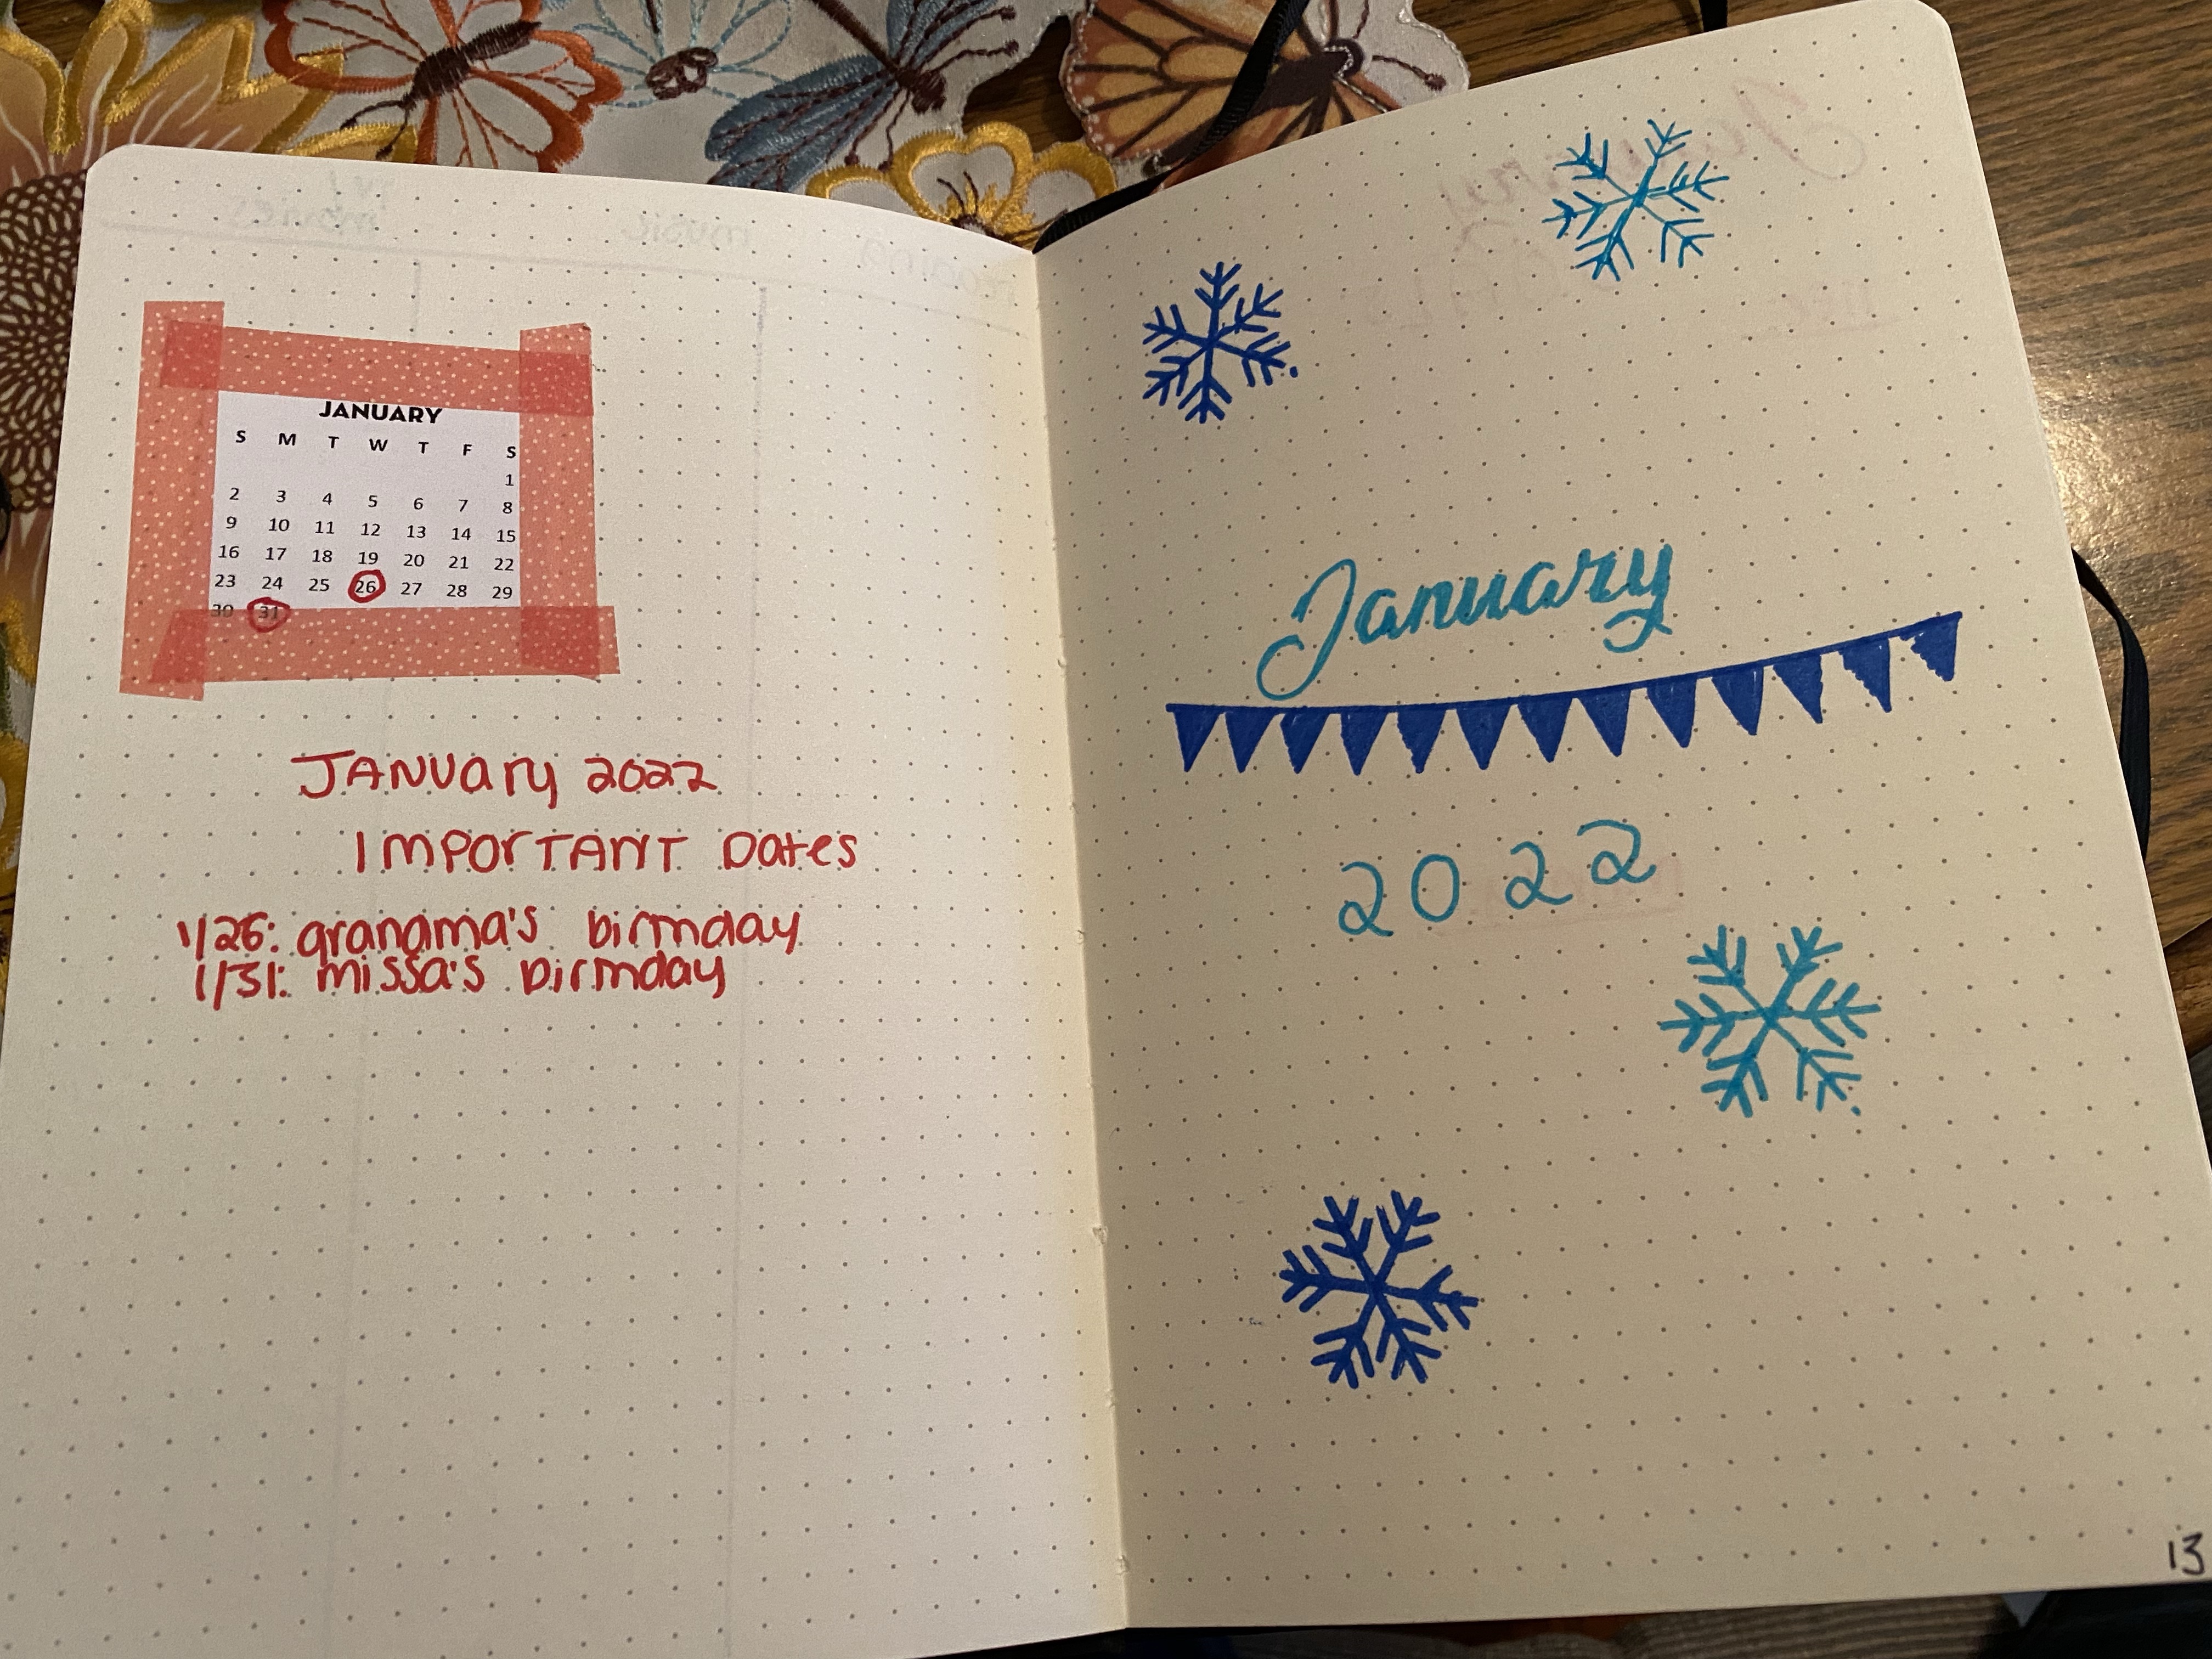 JANUARY
S M T W T F S
1
2 3 4 5 6 7 8
9 10 11 12 13 14 15
16 17 18 19 20 21 22
23 24 25 26 27 28 29
30 31
JANUary 2022
IMPOrTANT Dates
1/26: grandma's birthday
1/31: missa's birthday
January
2022
13